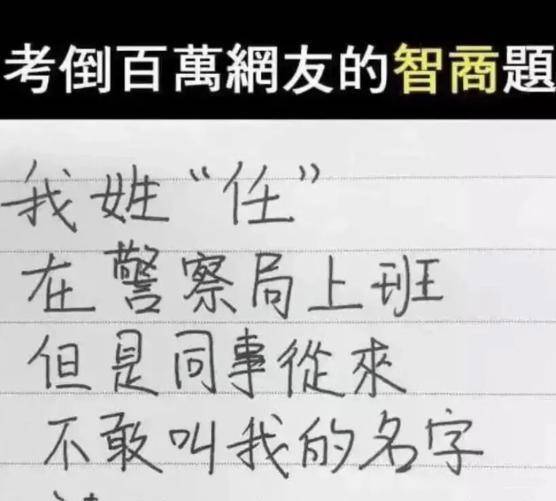 考倒百萬網友的智商題
我姓“任”
在警察局上班
但是同事從來
不敢叫我的名字